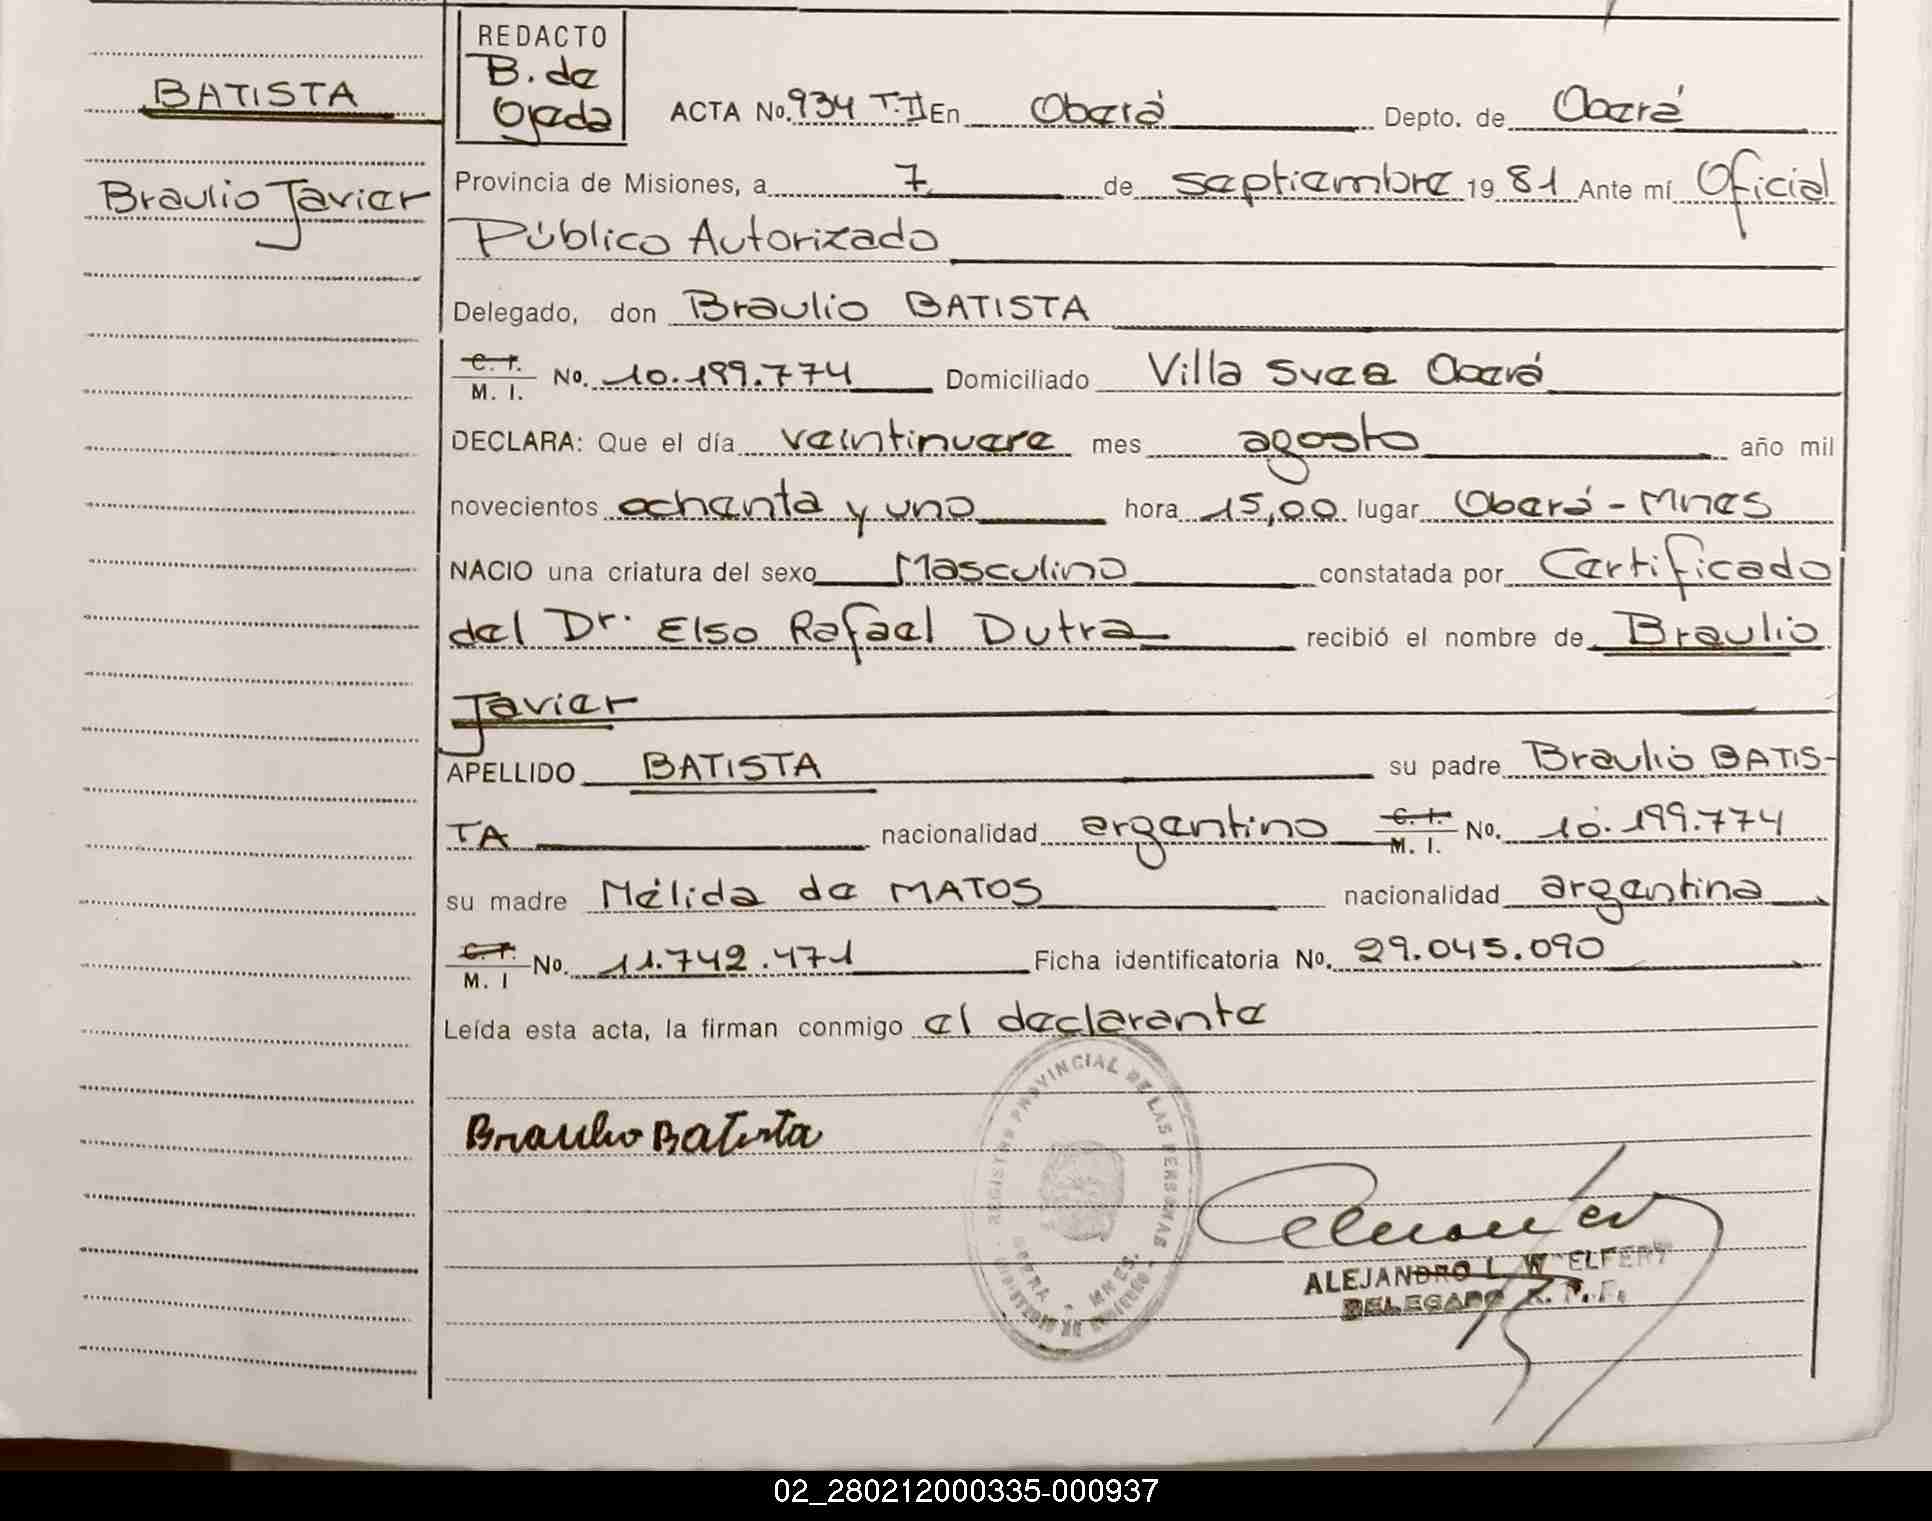 BATISTA
Braulio Javier
REDACTO
B. de
Ojeda
ACTA No. 934 T. II En Oberá Depto. de Oberá
Provincia de Misiones, a 7 de septiembre 19 81 Ante mí Oficial
Público Autorizado
Delegado, don Braulio BATISTA
C. I.
M. I. No. 10.199.774 Domiciliado Villa Svea Oberá
DECLARA: Que el día veintinueve mes agosto año mil
novecientos ochenta y uno hora 15,00 lugar Oberá - Mnes
NACIO una criatura del sexo Masculino constatada por Certificado
del Dr. Elso Rafael Dutra recibió el nombre de Braulio
Javier
APELLIDO BATISTA su padre Braulio BATIS-
TA nacionalidad argentino C. I. M. I. No. 10.199.774
su madre Mélida de MATOS nacionalidad argentina
C. I.
M. I No. 11.742.471 Ficha identificatoria No. 29.045.090
Leída esta acta, la firman conmigo el declarante
REGISTRO PROVINCIAL DE LAS PERSONAS
OBERA - MNES.
MINISTERIO DE GOBIERNO
Braulio Batista
ALEJANDRO L. W ELFERT
DELEGADO R. P. P.
02_280212000335-000937